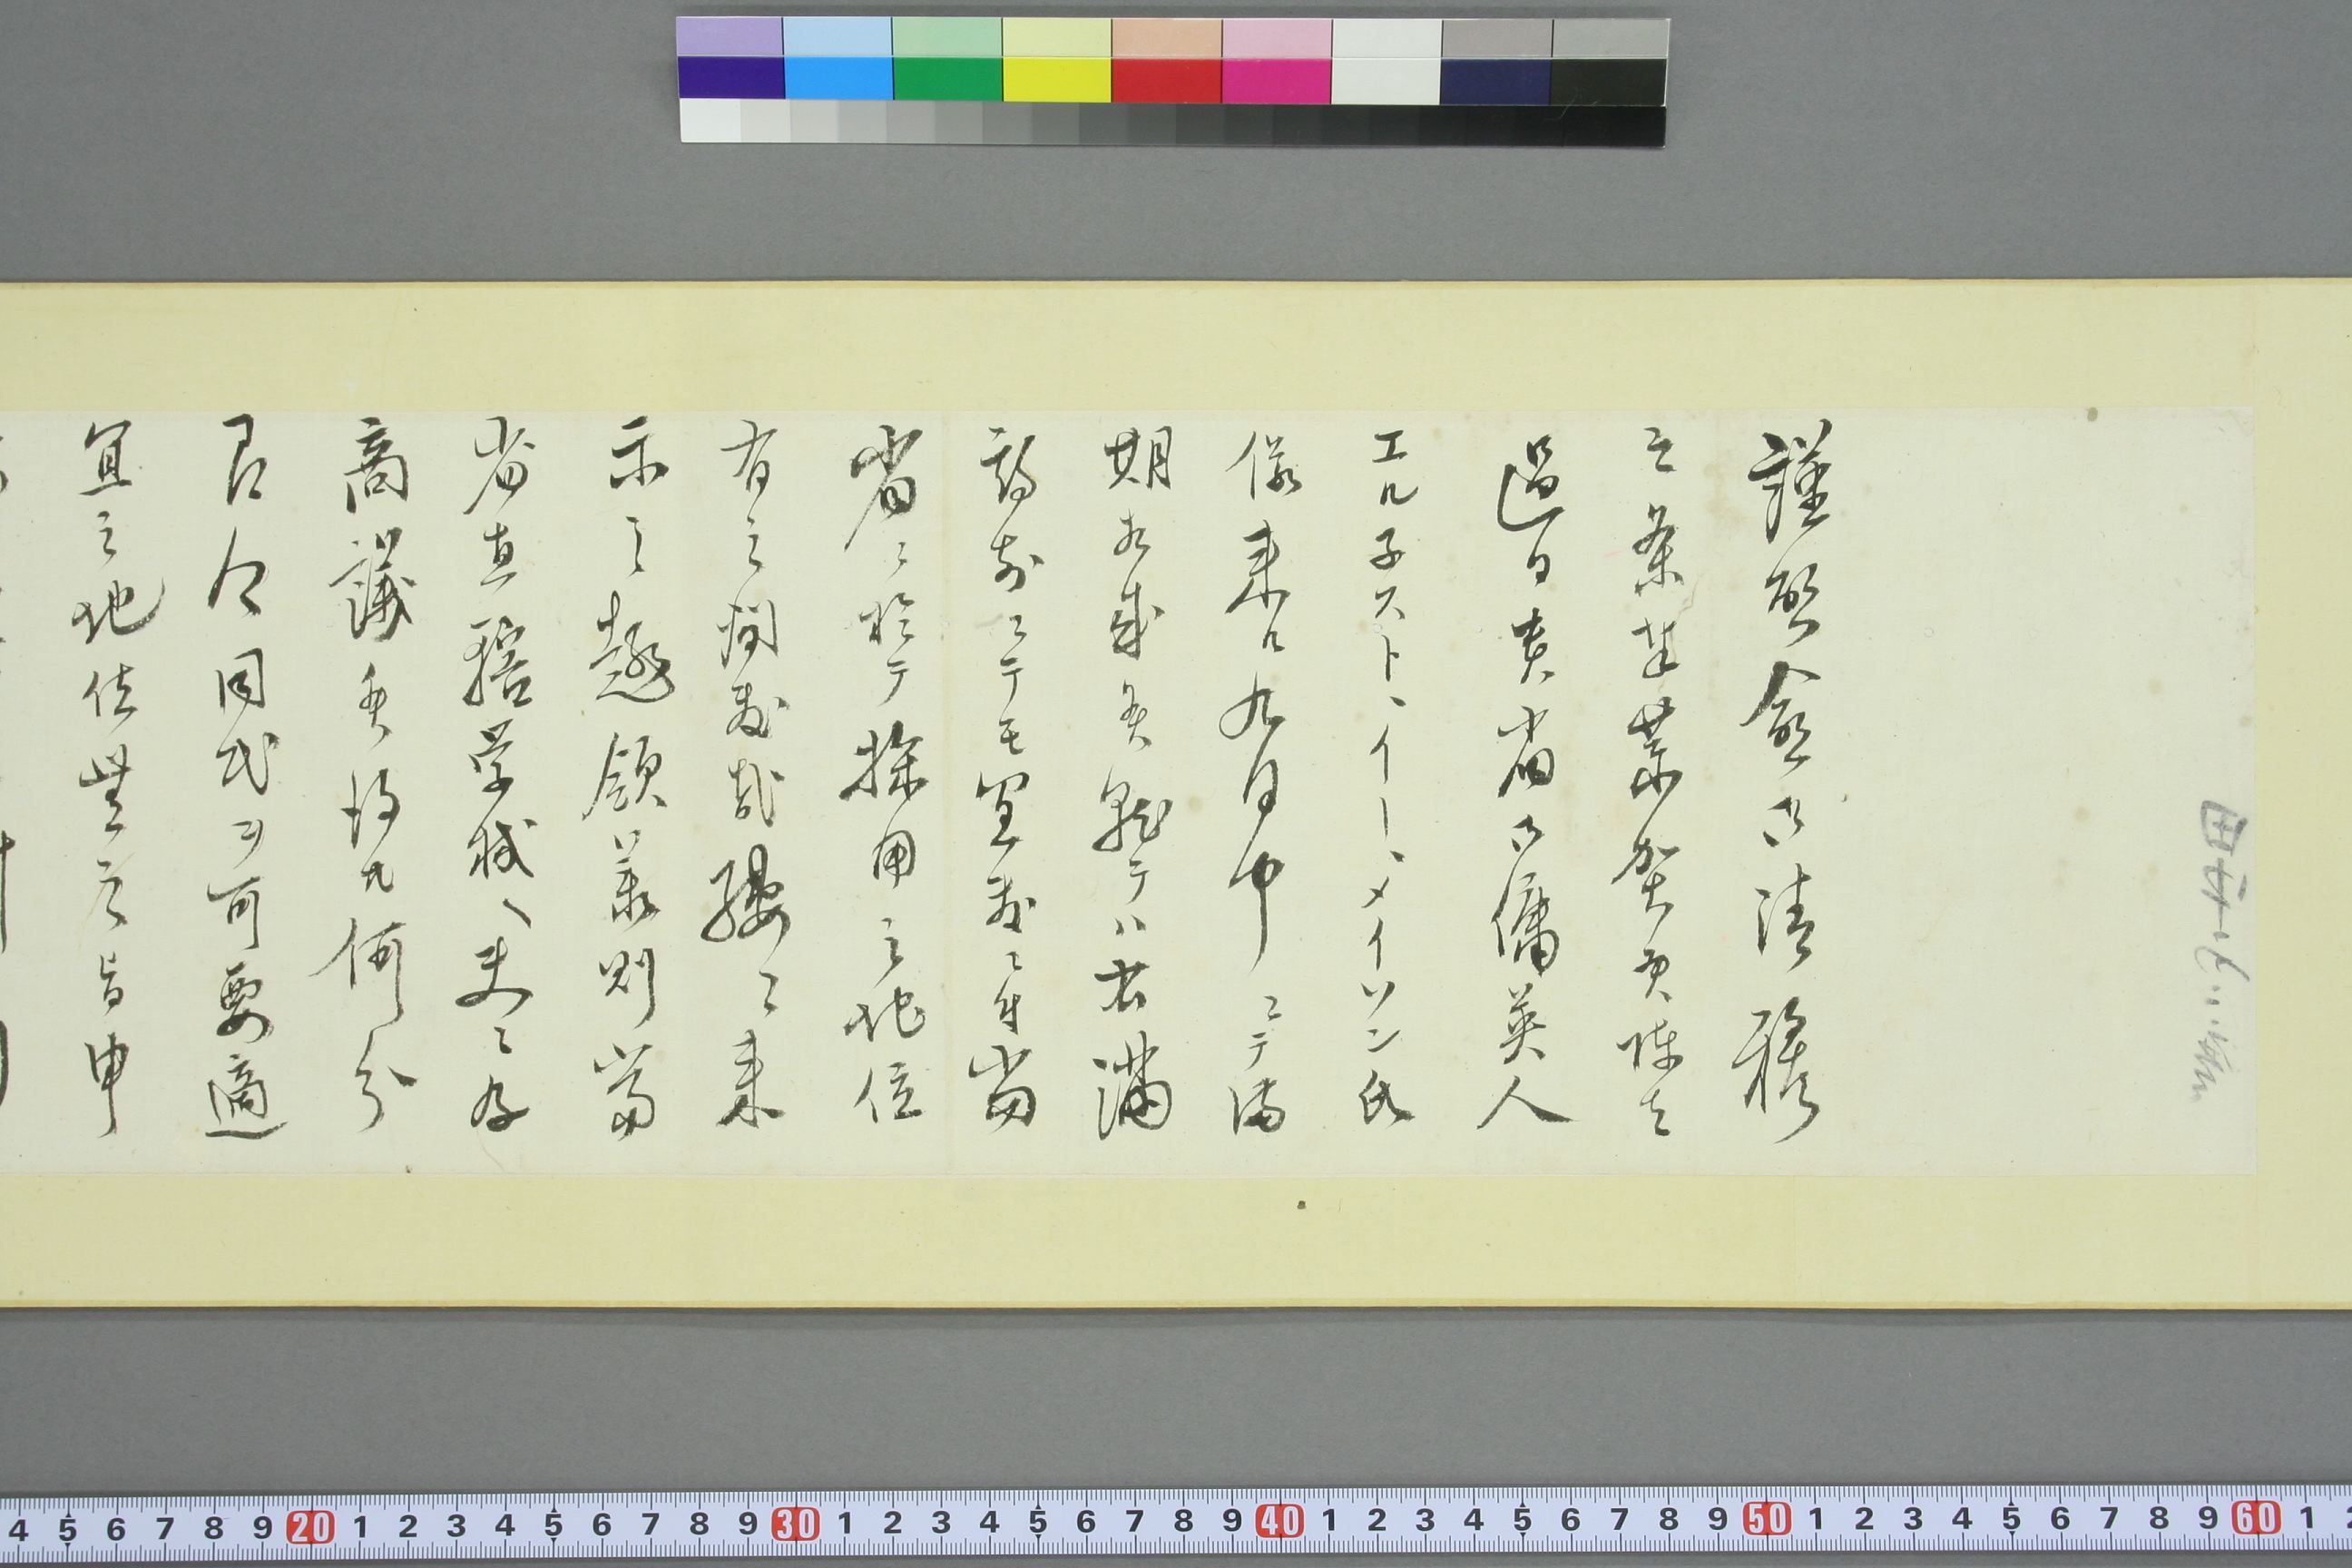 謹啓愈御清穆
之条奉荼賀候陳者
過日貴省御傭英人
エルネスト、イー、メイソン氏
儀来ル九月中ニテ満
期相成候就テハ右満
期前ニテモ宜敷ニ付当
省ニ於テ採用之地位
有之間敷哉縷々来
示之趣領承則当
省直轄学校ハ夫々及
商議候得共何分
目今同氏ヲ可要適
宜之地位無之旨申
4 5 6 7 8 9 20 1 2 3 4 5 6 7 8 9 30 1 2 3 4 5 6 7 8 9 40 1 2 3 4 5 6 7 8 9 50 1 2 3 4 5 6 7 8 9 60 1